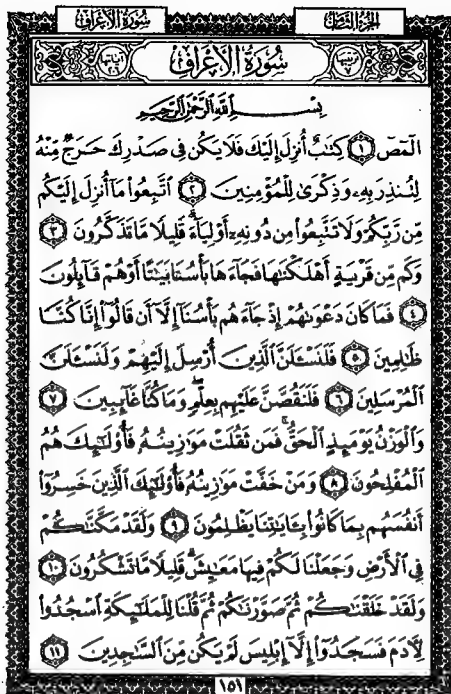 سُورَةُ الأَعْرَافِ
الجُزْءُ الثَّامِنُ
سُورَةُ الأَعْرَافِ
بِسْمِ اللَّهِ الرَّحْمَٰنِ الرَّحِيمِ
الٓمٓصٓ ١ كِتَٰبٌ أُنزِلَ إِلَيْكَ فَلَا يَكُن فِى صَدْرِكَ حَرَجٌ مِّنْهُ
لِتُنذِرَ بِهِۦ وَذِكْرَىٰ لِلْمُؤْمِنِينَ ٢ ٱتَّبِعُوا۟ مَآ أُنزِلَ إِلَيْكُم
مِّن رَّبِّكُمْ وَلَا تَتَّبِعُوا۟ مِن دُونِهِۦٓ أَوْلِيَآءَ ۗ قَلِيلًا مَّا تَذَكَّرُونَ ٣
وَكَم مِّن قَرْيَةٍ أَهْلَكْنَٰهَا فَجَآءَهَا بَأْسُنَا بَيَٰتًا أَوْ هُمْ قَآئِلُونَ
٤ فَمَا كَانَ دَعْوَىٰهُمْ إِذْ جَآءَهُم بَأْسُنَآ إِلَّآ أَن قَالُوٓا۟ إِنَّا كُنَّا
ظَٰلِمِينَ ٥ فَلَنَسْـَٔلَنَّ ٱلَّذِينَ أُرْسِلَ إِلَيْهِمْ وَلَنَسْـَٔلَنَّ
ٱلْمُرْسَلِينَ ٦ فَلَنَقُصَّنَّ عَلَيْهِم بِعِلْمٍ ۖ وَمَا كُنَّا غَآئِبِينَ ٧
وَٱلْوَزْنُ يَوْمَئِذٍ ٱلْحَقُّ ۚ فَمَن ثَقُلَتْ مَوَٰزِينُهُۥ فَأُو۟لَٰٓئِكَ هُمُ
ٱلْمُفْلِحُونَ ٨ وَمَنْ خَفَّتْ مَوَٰزِينُهُۥ فَأُو۟لَٰٓئِكَ ٱلَّذِينَ خَسِرُوٓا۟
أَنفُسَهُم بِمَا كَانُوا۟ بِـَٔايَٰتِنَا يَظْلِمُونَ ٩ وَلَقَدْ مَكَّنَّٰكُمْ
فِى ٱلْأَرْضِ وَجَعَلْنَا لَكُمْ فِيهَا مَعَٰيِشَ ۗ قَلِيلًا مَّا تَشْكُرُونَ ١٠
وَلَقَدْ خَلَقْنَٰكُمْ ثُمَّ صَوَّرْنَٰكُمْ ثُمَّ قُلْنَا لِلْمَلَٰٓئِكَةِ ٱسْجُدُوا۟
لِـَٔادَمَ فَسَجَدُوٓا۟ إِلَّآ إِبْلِيسَ لَمْ يَكُن مِّنَ ٱلسَّٰجِدِينَ ١١
١٥١